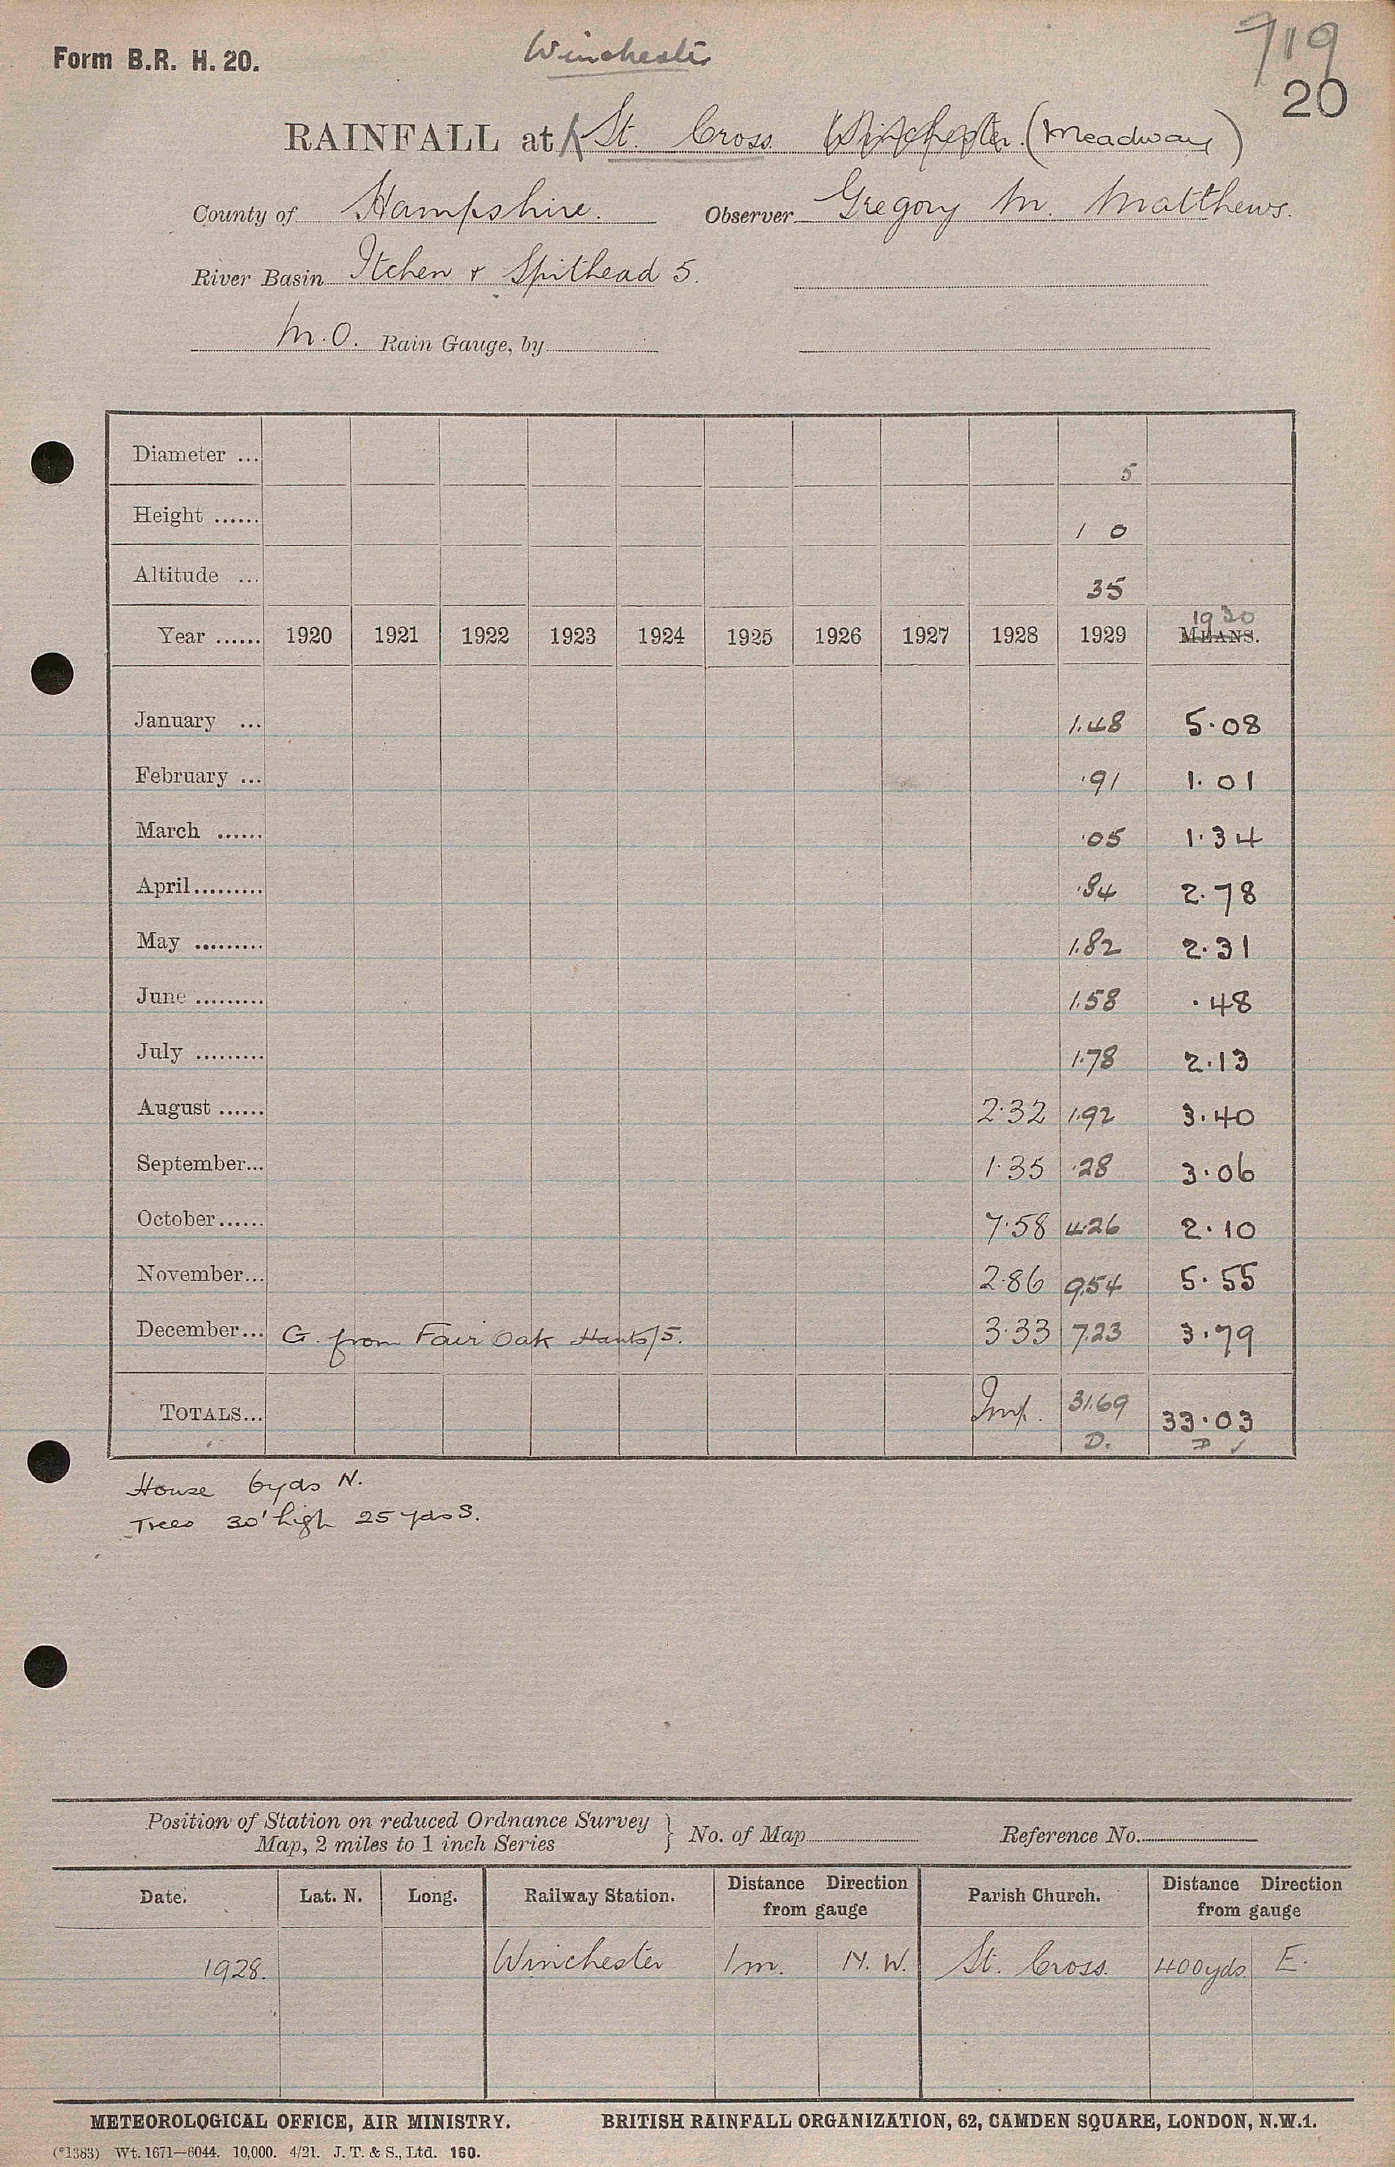 719
Form B.R. H. 20.
Winchester
20
RAINFALL at St. Cross Winchester. (Meadway)
County of Hampshire. Observer Gregory M. Matthews.
River Basin Itchen & Spithead 5.
M.O. Rain Gauge, by
Diameter ... 5
Height ...... 1 0
Altitude ... 35
1930
Year ...... 1920 1921 1922 1923 1924 1925 1926 1927 1928 1929 MEANS.
January ... 1.48 5.08
February ... .91 1.01
March ...... .05 1.34
April......... .84 2.78
May ......... 1.82 2.31
June ......... 1.58 .48
July ......... 1.78 2.13
August ...... 2.32 1.92 3.40
September... 1.35 .28 3.06
October...... 7.58 4.26 2.10
November... 2.86 9.54 5.55
December... G. from Fair Oak Hants/5. 3.33 7.23 3.79
TOTALS... Imp. 31.69 33.03
D. D ✓
House 6yds N.
Trees 30' high 25 yds S.
Position of Station on reduced Ordnance Survey
Map, 2 miles to 1 inch Series } No. of Map Reference No.
Date. Lat. N. Long. Railway Station. Distance Direction from gauge Parish Church. Distance Direction from gauge
1928. Winchester 1m. N.W. St. Cross. 400yds. E.
METEOROLOGICAL OFFICE, AIR MINISTRY. BRITISH RAINFALL ORGANIZATION, 62, CAMDEN SQUARE, LONDON, N.W.1.
(*1383) Wt. 1671—6044. 10,000. 4/21. J. T. & S., Ltd. 160.